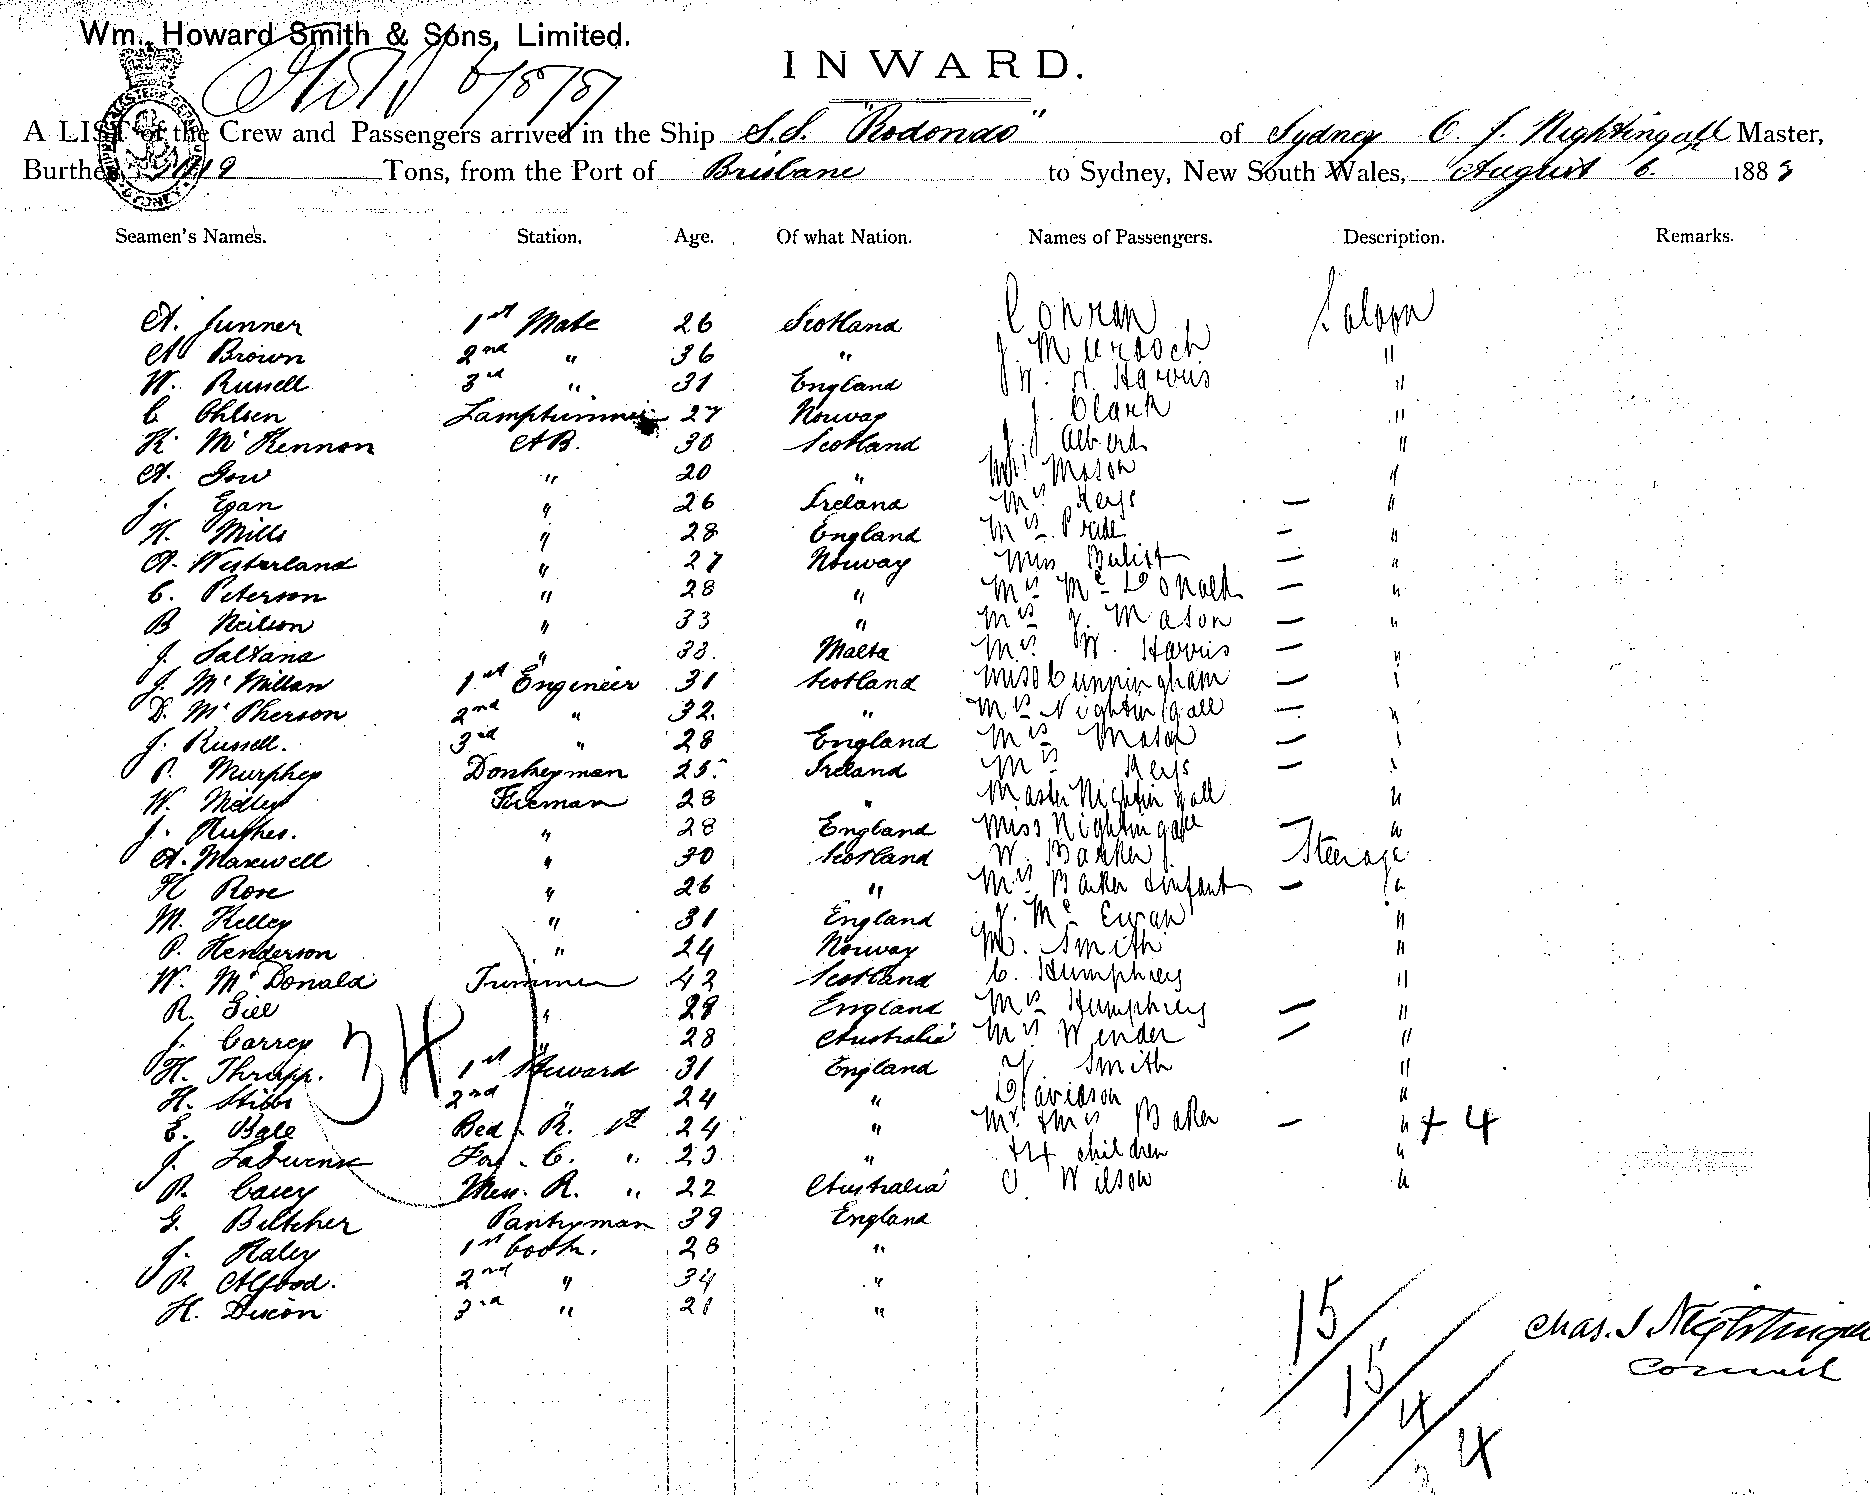 Wm. Howard Smith & Sons, Limited.
INWARD.
A LIST of the Crew and Passengers arrived in the Ship S.S. "Rodondo" of Sydney C. J. Nightingall Master,
Burthen Tons, from the Port of Brisbane to Sydney, New South Wales, August 6. 188
Seamen's Names. Station. Age. Of what Nation. Names of Passengers. Description. Remarks.
A. Junner 1st Mate 26 Scotland Conran Saloon
A Brown 2nd " 36 " J. Murdoch "
W. Russell 3rd " 31 England W. A. Harris "
C Ohlsen Lamptrimmer 27 Norway J. Clark "
K McKennon AB. 30 Scotland J. J. Alberd "
A. Gow " 20 " Mason "
J. Egan " 26 Ireland Mrs Keys — "
H. Mills " 28 England Mrs Pride — "
A. Westerland " 27 Norway Miss — "
C. Peterson " 28 " Mrs McDonald — "
B Neilson " 33 " Mrs J. Mason — "
J. Saltana " 33. Malta Mrs W. Harris — "
J. McMillan 1st Engineer 31 Scotland Miss Cunningham — "
D. McPherson 2nd " 32. " Mrs Nightingall — "
J. Russell. 3rd " 28 England Mrs Mason — "
P. Murphey Donkeyman 25. Ireland Mrs Keys — "
W. Fireman 28 " Master Nightingall "
J. Hughes. " 28 England Miss Nightingall — "
A. Maxwell " 30 Scotland W. Barker Steerage
H Rose " 26 " Mrs Barker & infant — "
M. Kelley " 31 England J. McEwan "
P. Henderson " 24 Norway M. Smith "
W. McDonald Trimmer 42 Scotland C. Humphreys "
R. Gill " 28 England Mrs Humphreys — "
J. Carrey " 28 Australia Mrs Wender — "
H. Thrupp. 1st Steward 31 England Smith "
H. Stibbs 2nd " 24 " Davidson "
E. Bale Bed. R. 1st 24 " Mr & Mrs Baker — " + 4
J. For. C. " 23 " +4 children "
P. Casey Mess. R. " 22 Australia Wilson "
G. Beltcher Pantryman 39 England
J. Haley 1st Cook. 28 "
P. Allgood. 2nd " 34 "
H. Dixon 3rd " 21 "
34
15/15/4/4
Chas. J Nightingall